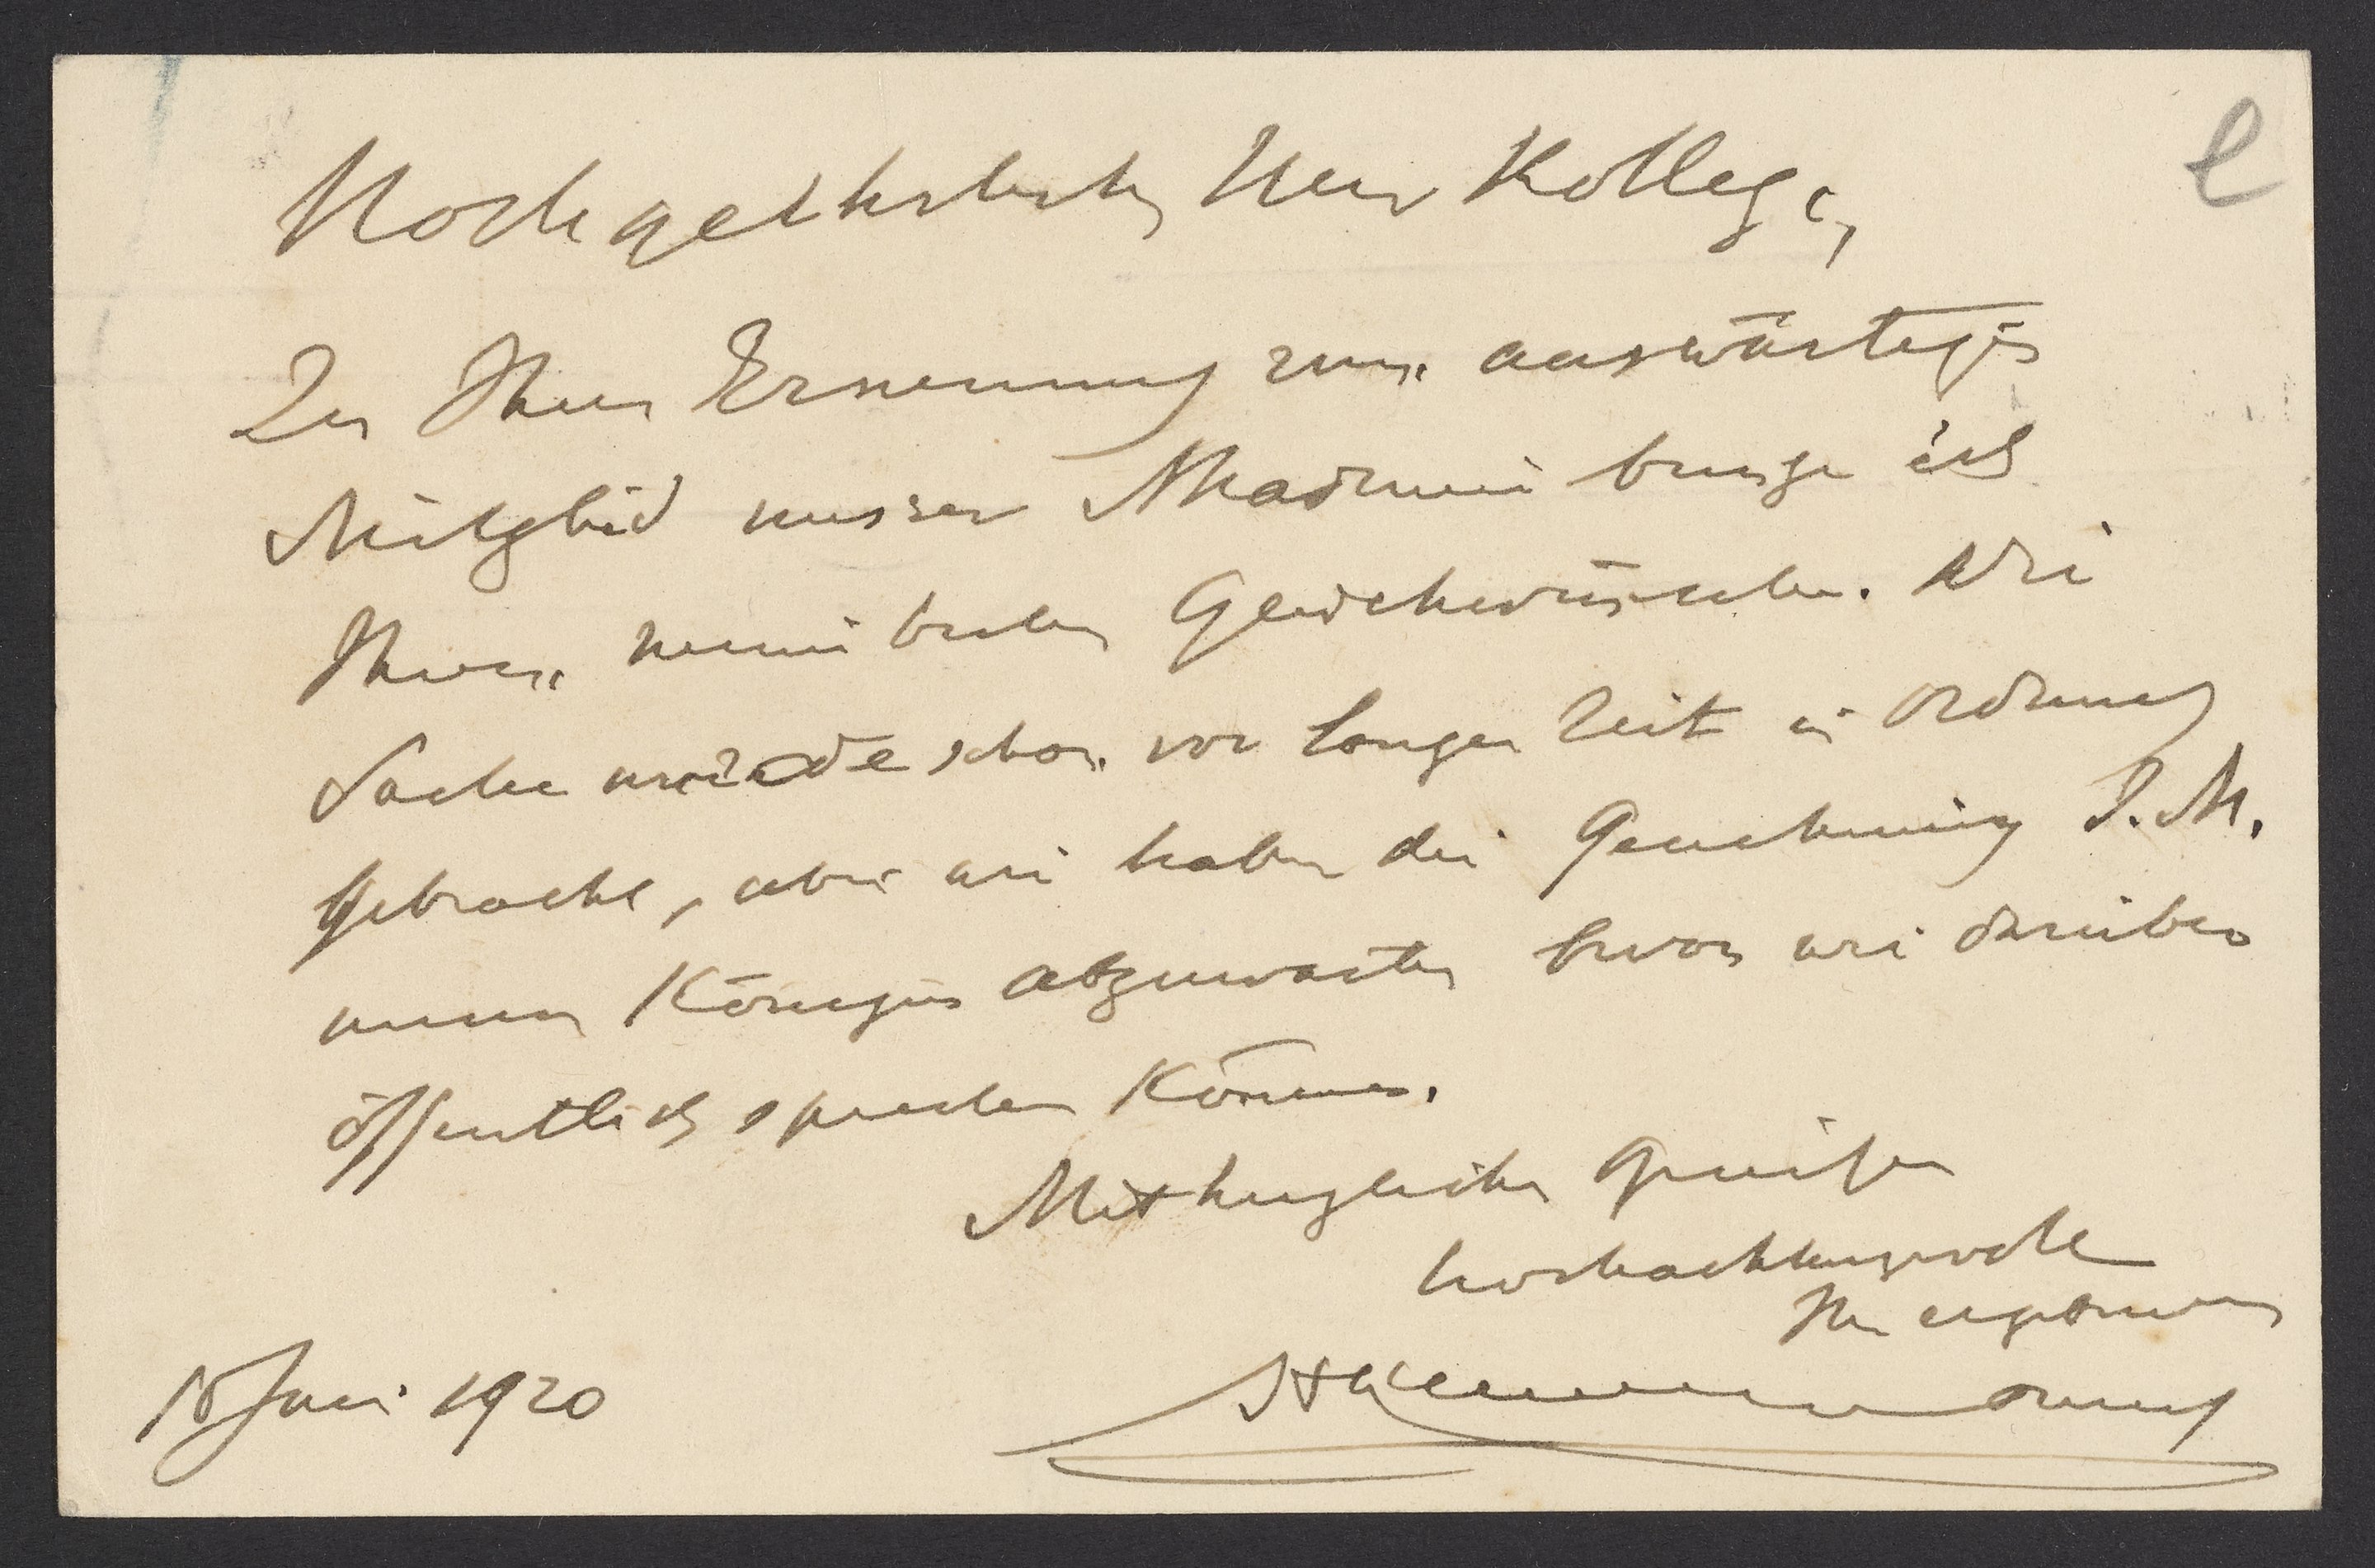 Hochgeehrtester Herr Kollege,
Zu Ihrer Ernennung zum auswärtigen
Mitglied unserer Akademie bringe ich
Ihnen meine besten Glückwünsche. Die
Sache wurde schon vor langer Zeit in Ordnung
gebracht, aber wir haben die Genehmigung I. M.
unserer Königin abzuwarten bevor wir darüber
öffentlich sprechen können.
Mit herzlichen Grüssen
hochachtungsvoll
Ihr ergebener
15 Juni 1920